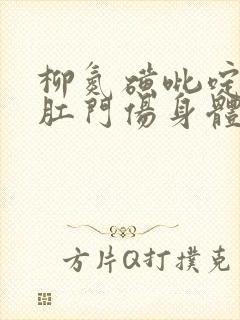 柳氮磺吡啶
肛門傷身體
方片Q打撲克